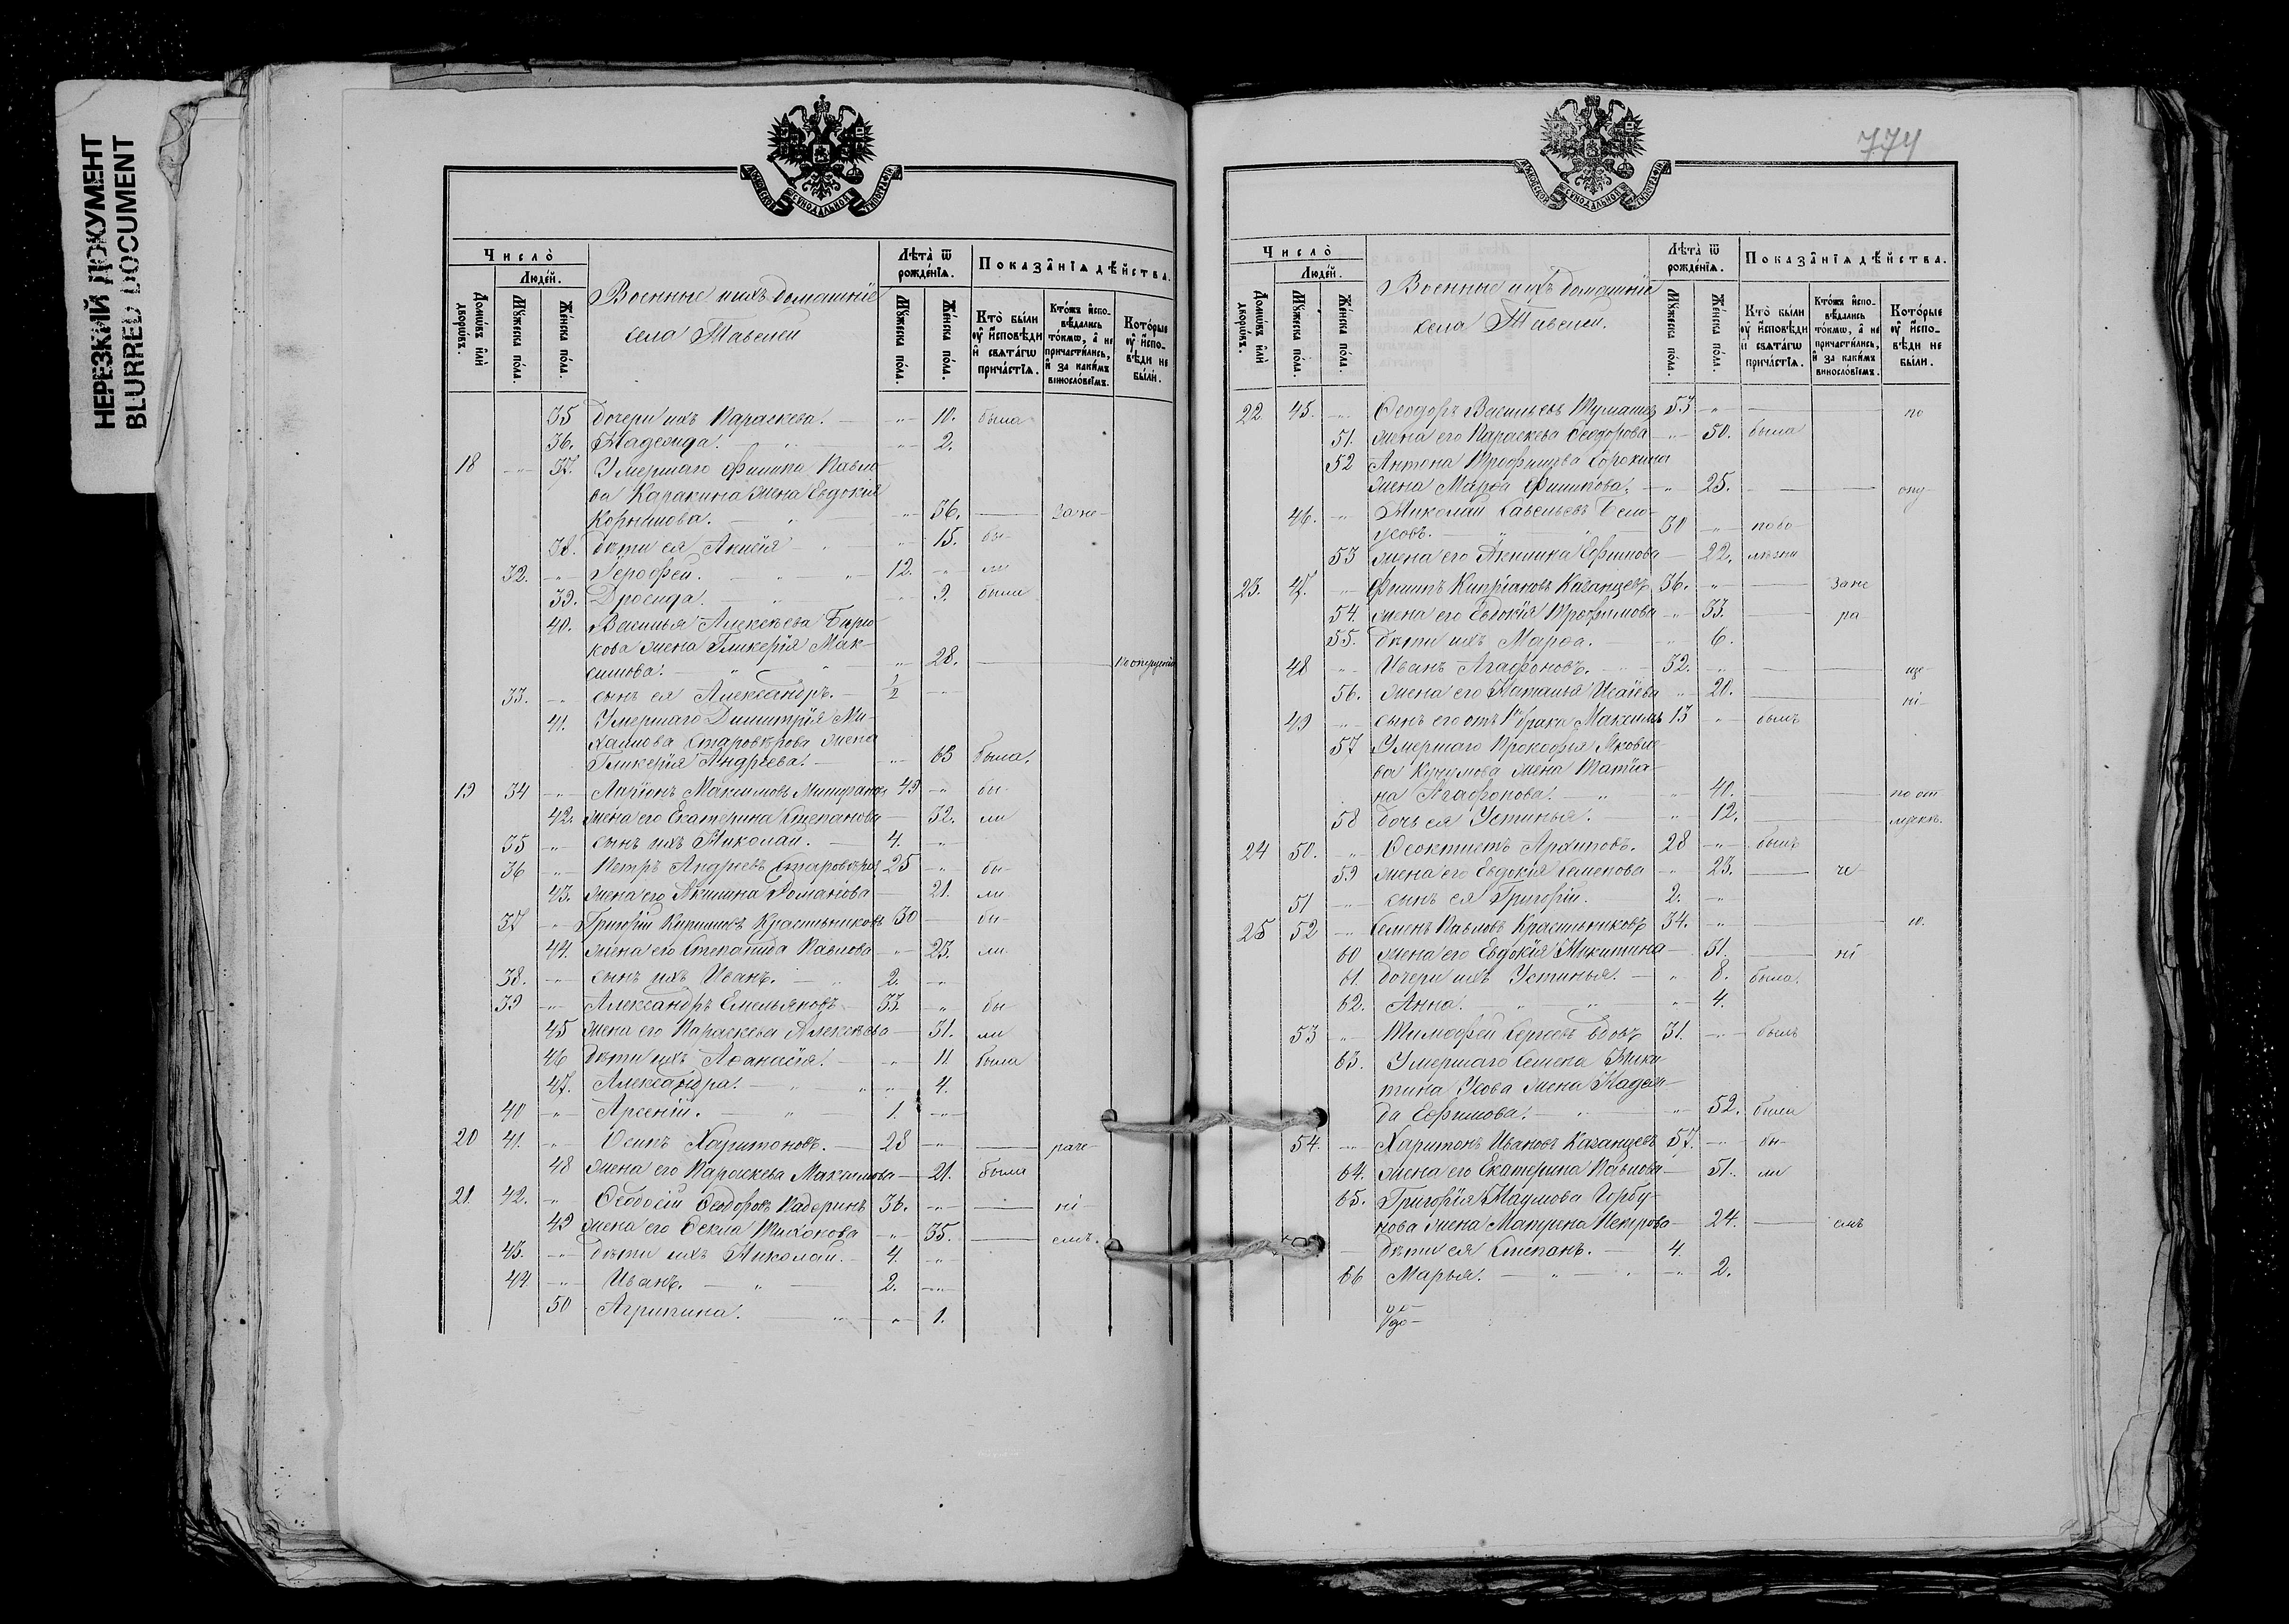 НЕРЕЗКИЙ ДОКУМЕНТ
BLURRED DOCUMENT
МОСКОВСКОЙ СѴНОДАЛЬНОЙ ТИПОГРАФІИ
Число̀
Люде́й.
Домѡ́въ и҆лѝ дворѡ́въ.
Мꙋ́жеска по́ла.
Же́нска по́ла.
Военные и ихъ домашніе
села Тавелей
Лѣта̀ ѿ рожде́нїѧ.
Мꙋ́жеска по́ла.
Же́нска по́ла.
Показа̑нїѧ дѣ́йства.
Кто̀ бы́ли оу҆ и҆сповѣ́ди и҆ свѧта́гѡ прича́стїѧ.
Кто́жъ и҆спо-вѣ́дались то́кмѡ, а҆ не причасти́лись, и҆ за каки́мъ виносло́вїемъ.
Кото́рые оу҆ и҆спо-вѣ́ди не бы́ли.
35 дочери ихъ Параскева. 10. была
36. Надежда. 2.
18 37. Умершаго Филипа Павло-
ва Каракина жена Евдокія
Корнилова. 36.
38. дѣти ея Анисія 15. бы-
32. Іерофей. 12. ли
39. Дросида. 9. была
40. Василья Алексѣева Бирю-
кова жена Гликерія Мак-
симова. 28. по опущенію
33. сынъ ея Александръ. 1/2
41. Умершаго Димитрія Ми-
хайлова Старовѣрова жена
Гликерія Андреева. 63 была.
19 34 Ларіонъ Максимовъ 49 бы-
42. жена его Екатерина Степанова 32. ли
35 сынъ ихъ Николай. 4.
36 Петръ Андреевъ Старовѣровъ 25 бы-
43. жена его Акилина Романова 21. ли
37 Григорій Кириловъ Красильниковъ 30 бы-
44. жена его Степанида Павлова 23. ли
38. сынъ ихъ Иванъ. 2.
39 Александръ Емельяновъ 33. бы
45 жена его Параскева Алексѣева 31. ли
46 дѣти ихъ Аѳанасія. 11 была
47. Александра. 4.
40 Арсеній. 1.
20 41. Осипъ Харитоновъ. 28 раче-
48 жена его Параскева Максимова 21. была
21. 42. Ѳеодосій Ѳеодоровъ Кадеринъ 36. ні-
49 жена его Ѳекла Тихонова 35. емъ.
43. дѣти ихъ Николай. 4.
44 Иванъ. 2.
50 Агрипина. 1.
774
МОСКОВСКОЙ СѴНОДАЛЬНОЙ ТИПОГРАФІИ
Число̀
Люде́й.
Домѡ́въ и҆лѝ дворѡ́въ.
Мꙋ́жеска по́ла.
Же́нска по́ла.
Военные и ихъ домашніе
села Тавелей.
Лѣта̀ ѿ рожде́нїѧ.
Мꙋ́жеска по́ла.
Же́нска по́ла.
Показа̑нїѧ дѣ́йства.
Кто̀ бы́ли оу҆ и҆сповѣ́ди и҆ свѧта́гѡ прича́стїѧ.
Кто́жъ и҆спо-вѣ́дались то́кмѡ, а҆ не причасти́лись, и҆ за каки́мъ виносло́вїемъ.
Кото́рые оу҆ и҆спо-вѣ́ди не бы́ли.
22 45. Ѳеодоръ Васильевъ 53 по
51. жена его Параскева Ѳеодорова 50. была
52 Антона Трофимова Сорокина
жена Марѳа Филипова. 25. опу-
46. Николай Савельевъ Бело-
усовъ. 30 по бо-
53 жена его Акилина Ефимова 22. лѣзни
23. 47. Филипъ Кипріановъ Казанцевъ 36. за не
54. жена его Евдокія Трофимова 33. ра-
55. дѣти ихъ Марѳа. 6.
48 Иванъ Агафоновъ. 32. ще-
56. жена его Наталья Исаева 20. ні-
49 сынъ его отъ 1го брака Максимъ 13 былъ
57 Умершаго Прокофія Яковле-
ва Кучумова жена Татіа-
на Агафонова. 40. по от-
58 дочь ея Устинья. 12. лучкѣ.
24 50. Ѳеоктистъ Архиповъ. 28 былъ
59 жена его Евдокія Семенова 23. че
51 сынъ ея Григорій. 2.
25 52 Семенъ Павловъ Красильниковъ 34. ю.
60 жена его Евдокія Никитина 31. ні
61. дочери ихъ Устинья. 8. была.
62. Анна. 4.
53 Тимофей Сергеевъ вдовъ 31. былъ
63. Умершаго Семена Ники-
тина Усова жена Надеж-
да Ефимова. 52. была
54. Харитонъ Ивановъ Казанцевъ 57. бы-
64. жена его Екатерина Павлова 51. ли
65. Григорія Наумова Горбу-
нова жена Матрена Петрова 24. емъ
дѣти ея Степанъ. 4.
66 Марья. 2.